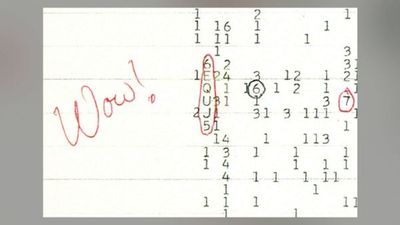 Wow!
1 2 1
1 16 1 1
1 11 1 1
3
6 2 3
1E24 3 12 1 21
Q 1 16 1 2 1 1
U31 1 3 7
2J1 31 3 111 1
5 1
14 113 1
1 3 1 1
1 4 1 1
1 4 1 1
1
1
1